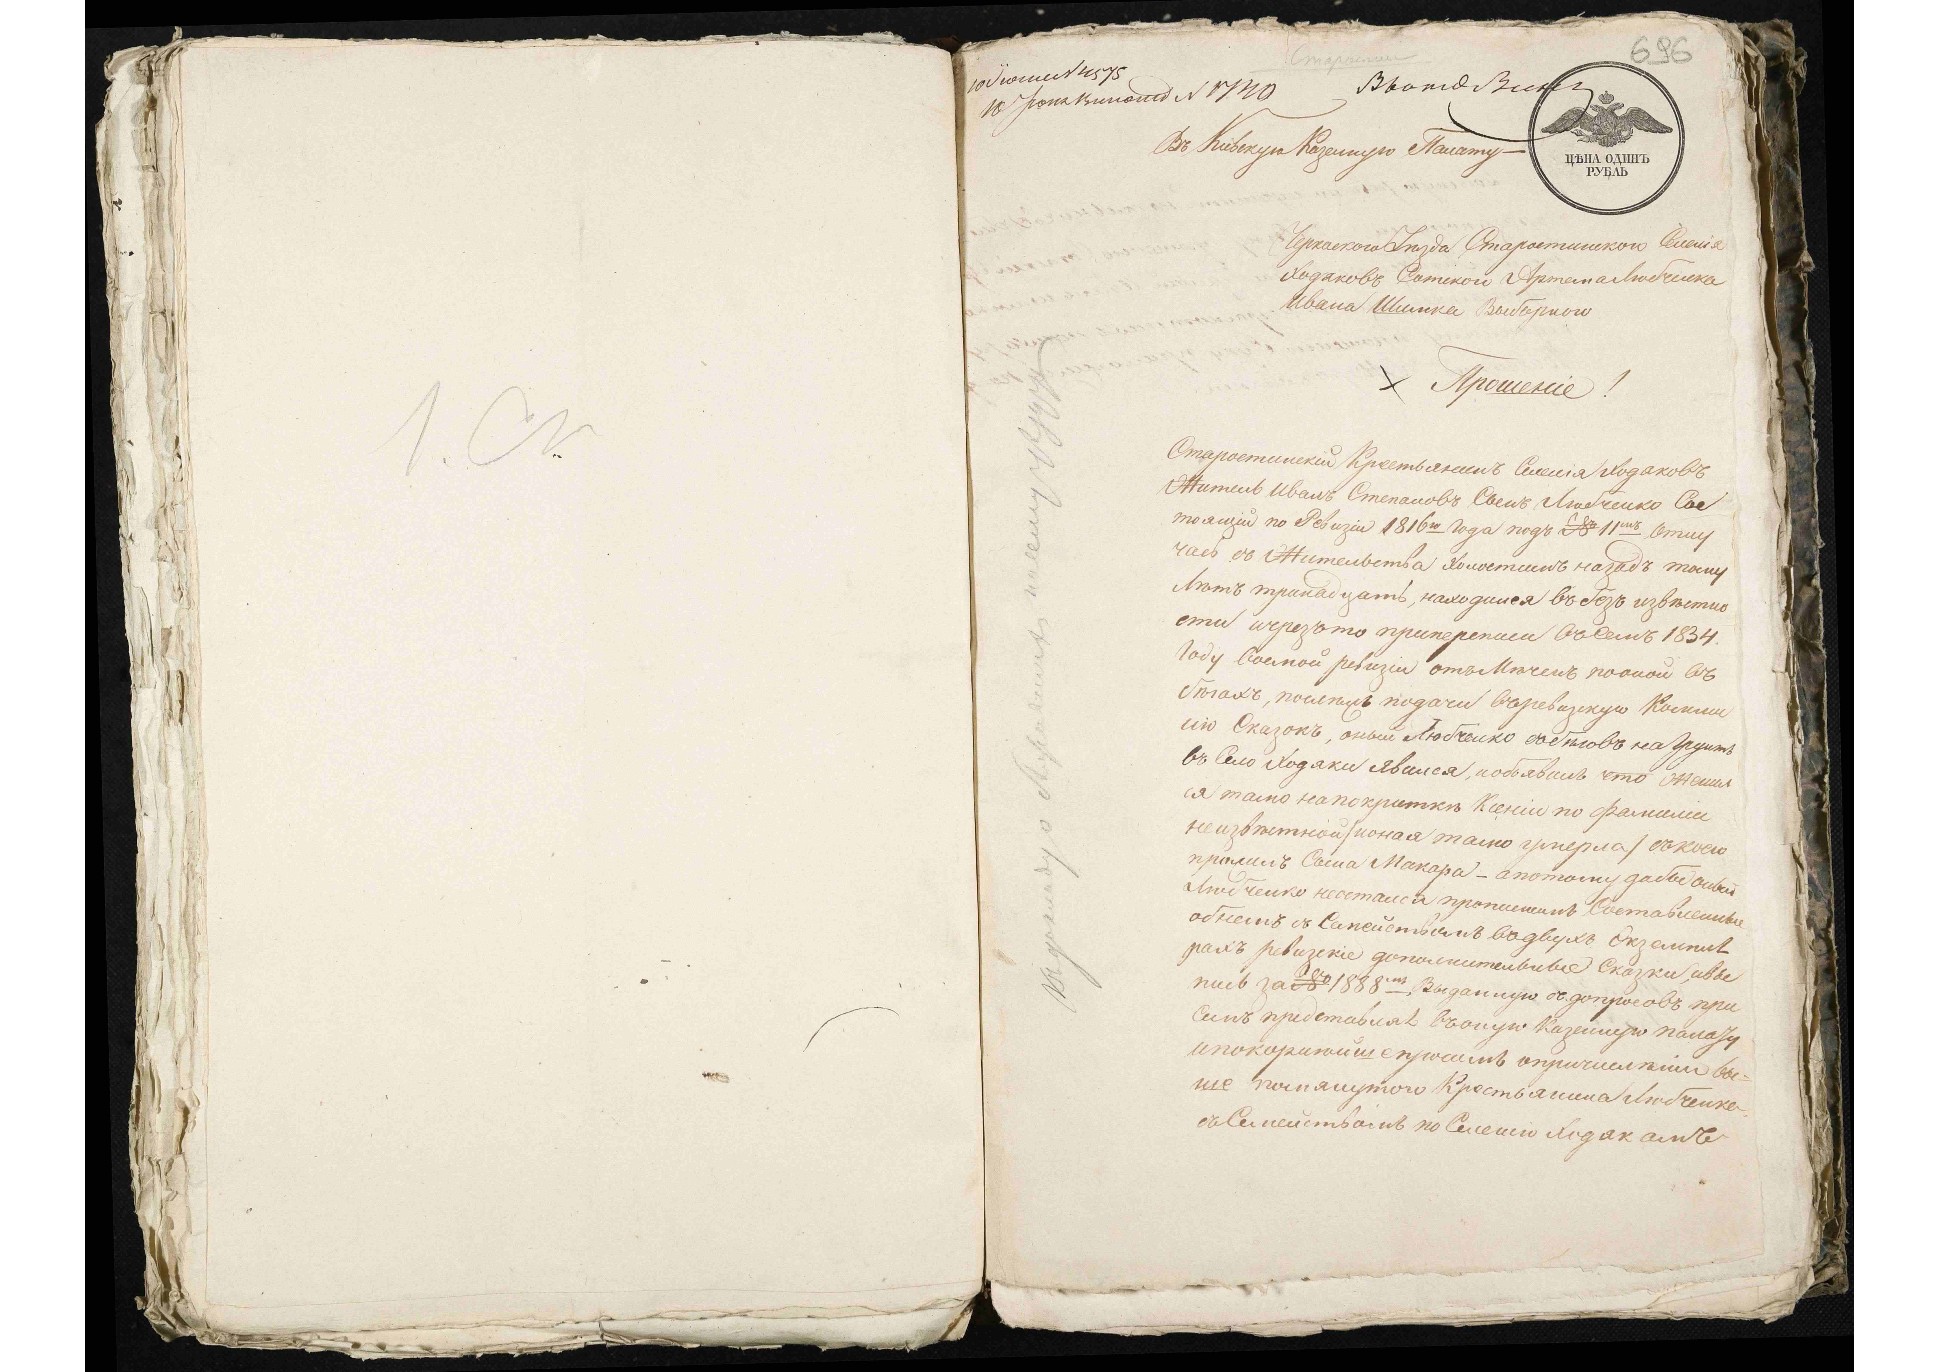 1. Ск.
696
10 Июня N 4575
N 17140
Въ Кіевскую Казенную Палату
ЦѢНА ОДИНЪ
РУБЛЬ
Черкаского Уезда Старостинского Селенія
Ходяковъ Сотского Артема Любченка
Ивана Шинка Выборного
Прошеніе!
Старостинский Крестьянинъ Селенія Ходаковъ
Житель Иванъ Степановъ Сынъ Любченко Сос
тоящій по Ревизіи 1816го Года подъ № 11мъ Отлу
часъ съ Жительства Холостымъ назадъ тому
Лѣтъ тринадцать, находился въ безъ извѣстно
сти ичрезъто приперепыси въ семъ 1834.
Году восмой ревизіи отъМѣченъ по оной въ
бѣгахъ, послѣжъ подачи въревизскую Комми
сию Сказокъ, оный Любченко збѣговъ на Грунтъ
въ Село Ходяки явился, иобъявилъ что Оженил
ся тамо напокриткѣ Ксеніи по фамиліи
неизвѣстной /ионая тамо умерла/ съкоею
прижилъ Сына Макара - апотому дабы оный
Любченко неостался прописнымъ Составленные
обнемъ съ Семействомъ въдвухъ Экземпля
рахъ ревизскіе дополнительные Сказки, ивы
пись за № 1888мъ, Выданную здопросовъ при
Семъ представляя въоную Казенную палату
ипокорнѣйше просимъ опричисленіи вы=
ше помянутого Крестьянина Любченка
съСемействомъ по Селению Ходякамъ